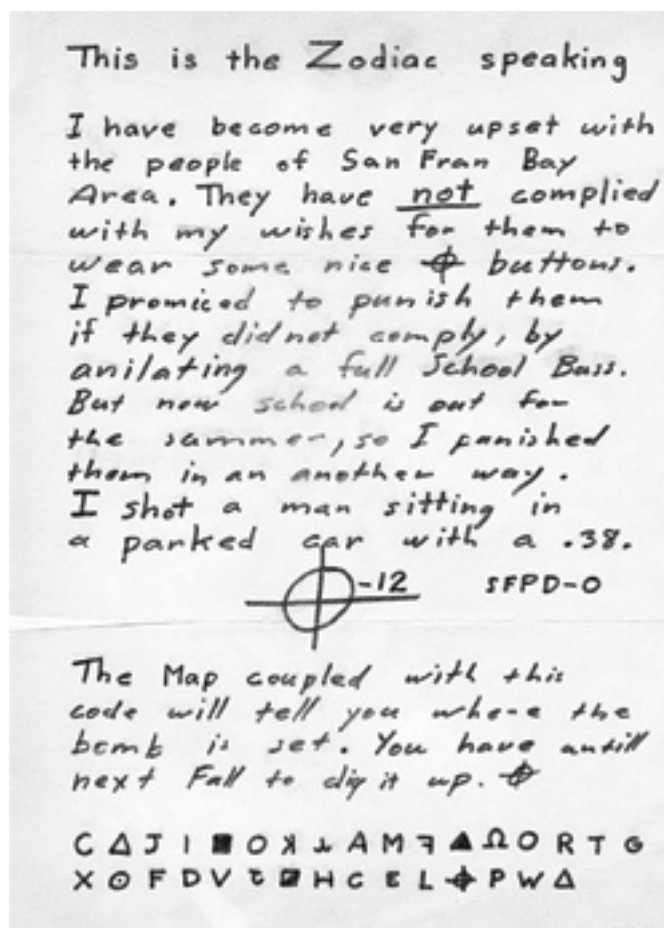 This is the Zodiac speaking
I have become very upset with
the people of San Fran Bay
Area. They have not complied
with my wishes for them to
wear some nice ⌖ buttons.
I promiced to punish them
if they did not comply, by
anilating a full School Buss.
But now school is out for
the summer, so I punished
them in an another way.
I shot a man sitting in
a parked car with a .38.
⌖-12 SFPD-0
The Map coupled with this
code will tell you where the
bomb is set. You have antill
next Fall to dig it up. ⌖
C Δ J I ■ O ꓘ A M ꟻ ▲ Ω O R T G
X ⊙ F D V H C E L ⌖ P W Δ